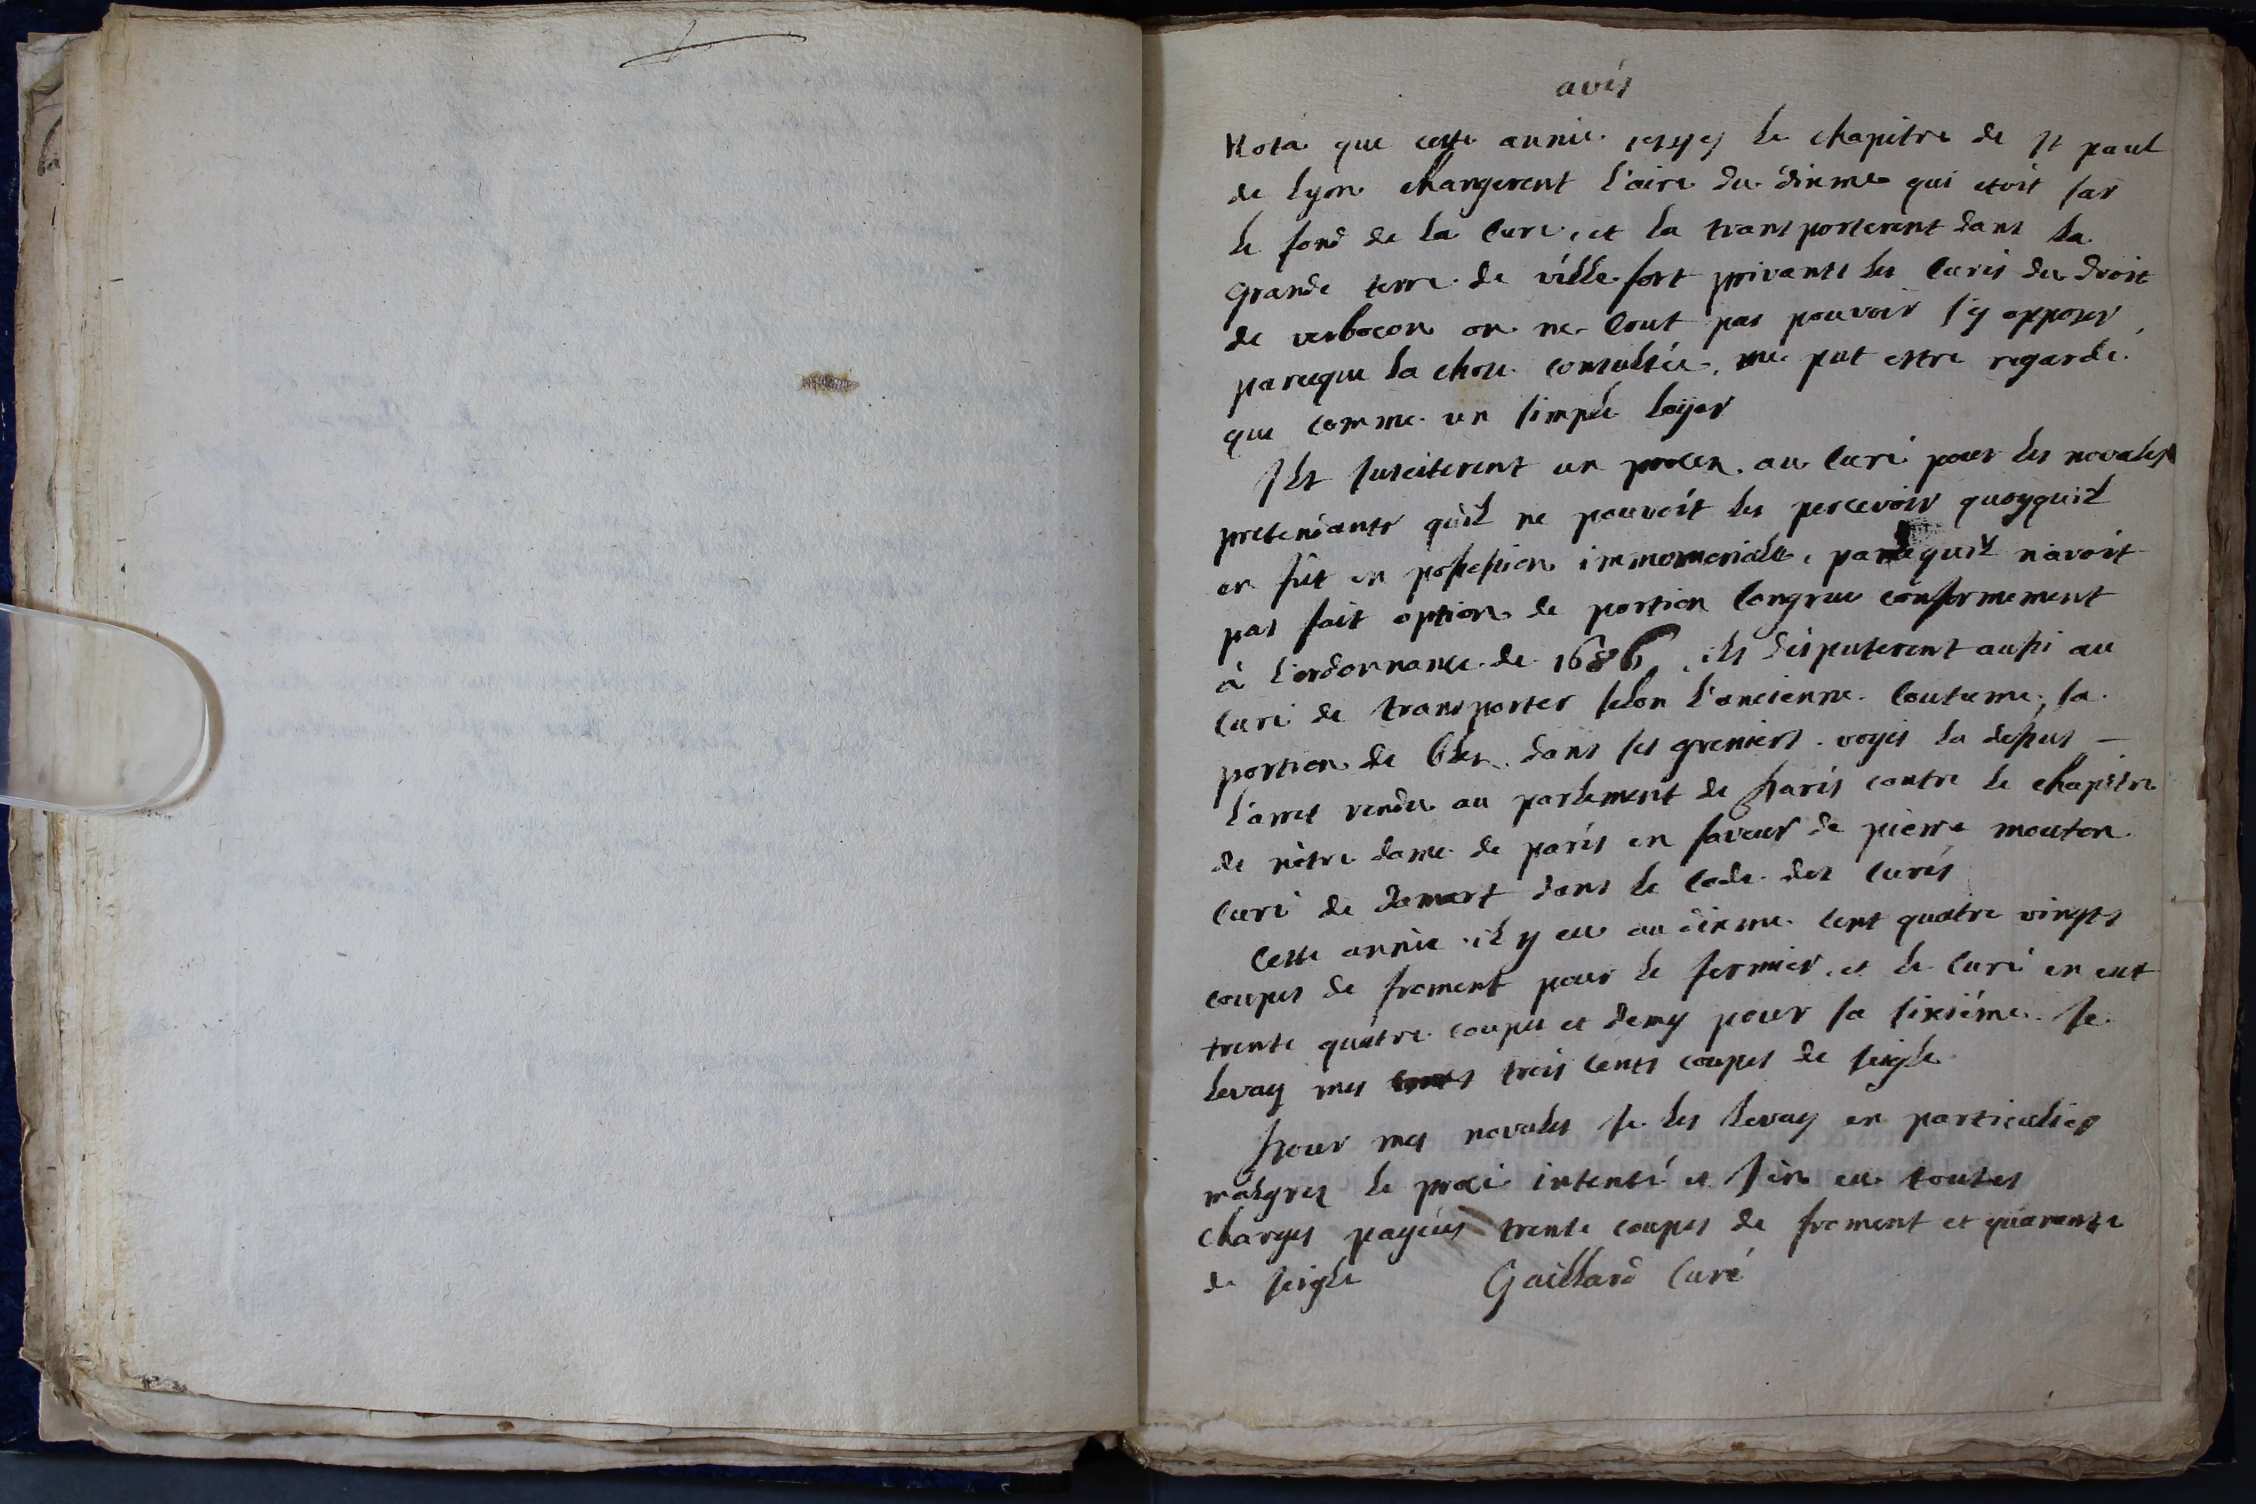 avis
Nota que cette année le chapitre de st paul
de Lyon changerent l'aire du dixme qui etoit sur
le fond de la Cure, et la transporterent dans la
grande terre de villefort privants les Curés du droit
de verbocon on ne Crut pas pouvoir s'y opposer
parceque la chose consultée, ne put estre regardé
que comme un simple loÿer
Ils susciterent un procez au Curé pour les novales
pretendants qu'il ne pouvoit les percevoir quoyquil
en fût en possession immemoriale, parcequil n'avoit
pas fait option de portion Congrue conformement
à l'ordonnance de 1686, ils disputerent aussi au
Curé de transporter selon l'ancienne Coutume, sa
portion de bles dans ses greniers. voyés la dessus –
l'arret rendu au parlement de Paris contre le chapitre
de nôtre dame de paris en faveur de pierre mouton
Curé de damart dans le Code des Curés
Cette année il y eu au dixme Cent quatre vingts
coupes de froment pour le fermier, et le Curé en eut
trente quatre coupes et demy pour sa sixiéme. Je
levay mes trois Cents coupes de seigle
Pour mes novales Je les levay en particulier
malgrez le procé intenté et J'en eu toutes
charges payées trente coupes de froment et quarante
de seigle Gaillard Curé